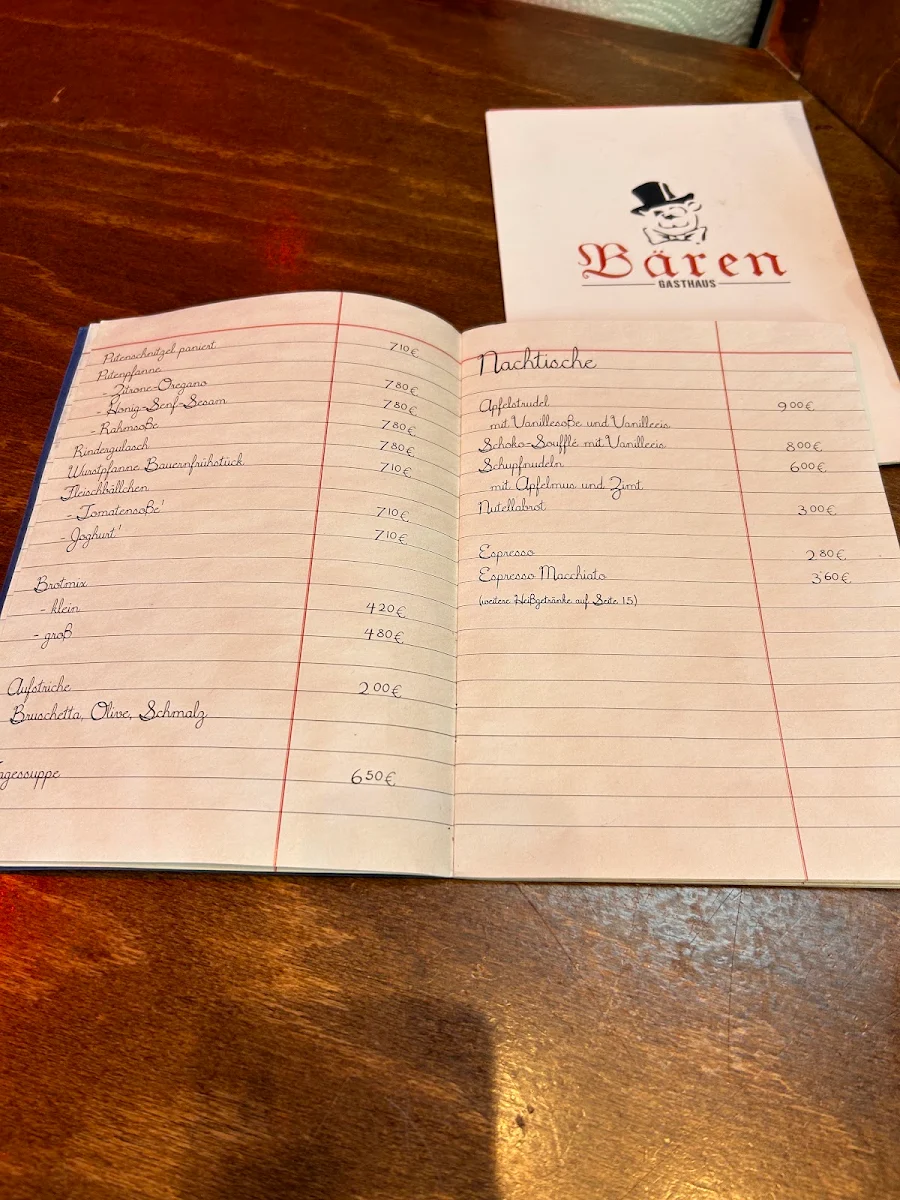 Bären
GASTHAUS
Putenschnitzel paniert 7 10 €
Putenpfanne
- Zitrone-Oregano 7 80 €
- Honig-Senf-Sesam 7 80 €
- Rahmsoße 7 80 €
Rindergulasch 7 80 €
Wurstpfanne Bauernfrühstück 7 10 €
Fleischbällchen
- Tomatensoße' 7 10 €
- Joghurt' 7 10 €
Brotmix
- klein 4 20 €
- groß 4 80 €
Aufstriche 2 00 €
Bruschetta, Olive, Schmalz
agessuppe 6 50 €
Nachtische
Apfelstrudel 9 00 €
mit Vanillesoße und Vanilleeis
Schoko-Soufflé mit Vanilleeis 8 00 €
Schupfnudeln 6 00 €
mit Apfelmus und Zimt
Nutellabrot 3 00 €
Espresso 2 80 €
Espresso Macchiato 3 60 €
(weitere Heißgetränke auf Seite 15)